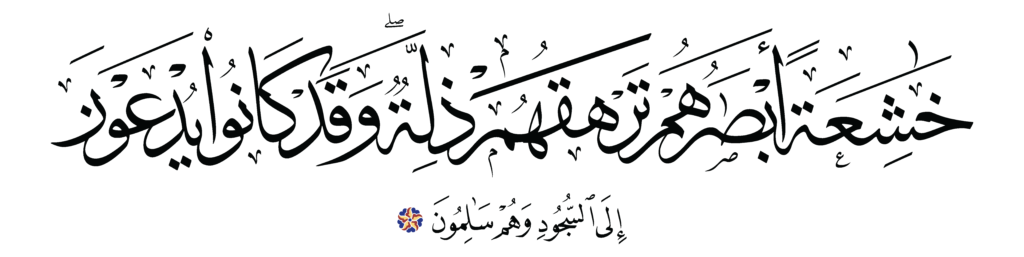 خَٰشِعَةً أَبْصَٰرُهُمْ تَرْهَقُهُمْ ذِلَّةٌ ۖ وَقَدْ كَانُوا۟ يُدْعَوْنَ
إِلَى ٱلسُّجُودِ وَهُمْ سَٰلِمُونَ